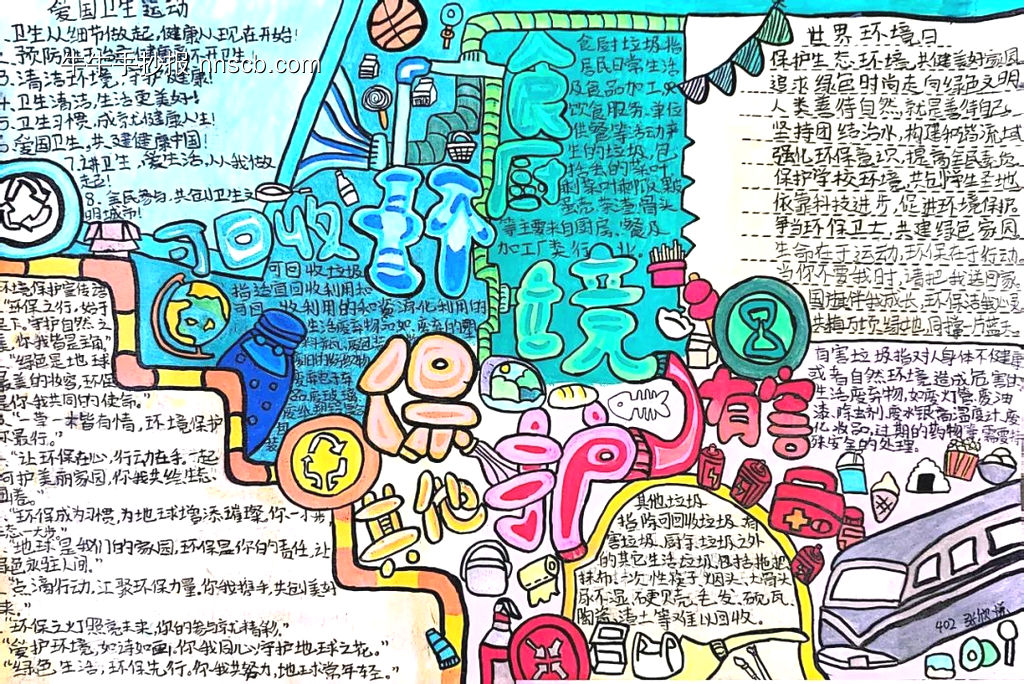 爱国卫生运动
1.卫生从细节做起,健康人现在开始!
2.预防胜治疗,健康离不开卫生!
3.清洁环境,守护健康!
4.卫生清洁,生活更美好!
5.卫生习惯,成就健康人生!
6.爱国卫生,共建健康中国!
7.讲卫生,爱生活,从我做
起!
8.全民参与,共创卫生文
明城市!
牛牛手抄报 nnscb.com
可回收
可回收垃圾
指适宜回收利用和
可回收利用的和资源化利用的
生活废弃物,如
食厨
食厨垃圾指
居民日常生活
及食品加工、
饮食服务、单位
供餐等活动产
生的垃圾,包
括丢的菜叶、
剩菜、剩饭、果
蛋壳、茶渣、骨头
等主要来自厨房、餐
加工厂类行业。
环境
保护
世界环境日
保护生态环境,共健美好家园
追求绿色时尚走向绿色文明
人类善待自然,就是善待自己
坚持团结治水,构建和谐流域
强化环保意识,提高全民素质
保护学校环境,共创学生圣地
依靠科技进步,促进环境保护
争当环保卫士,共建绿色家园
生命在于运动,环保在于行动
当你不要我时,请把我送回家
有害
有害垃圾指对人身体不健康
或者自然环境造成危害的
生活废弃物,如废灯管、废油
漆、除虫剂、废水银高温度计、废
化妆品,过期的药物等,需要特
殊安全的处理。
其他
其他垃圾
指除可回收垃圾、有
害垃圾、厨余垃圾之外
的其它生活垃圾,包括拖把
抹布、一次性筷子、烟头、大骨头
尿不湿、硬贝壳、毛发、砚瓦、
陶瓷、渣土等难以回收。
环境保护宣传语
"环保之行,始于
足下,守护自然之
美,你我皆是主角"
"绿色是地球
最美的妆容,环保
是你我共同的使命。"
"一草一木皆有情,环境保护
"让环保在心,行动在手,一起
呵护美丽家园,你我共绘生态
画卷。"
"环保成为习惯,为地球增添璀璨,你一小步
生态一大步。"
"地球是我们的家园,环保是你的责任,让
绿色永驻人间。"
"点滴行动,汇聚环保力量,你我携手,共创美好
未来。"
"环保之灯照亮未来,你的参与就精彩。"
"爱护环境,如诗如画,你我同心,守护地球之花。"
"绿色生活,环保先行。你我共努力,地球常年轻。"
402 张欣